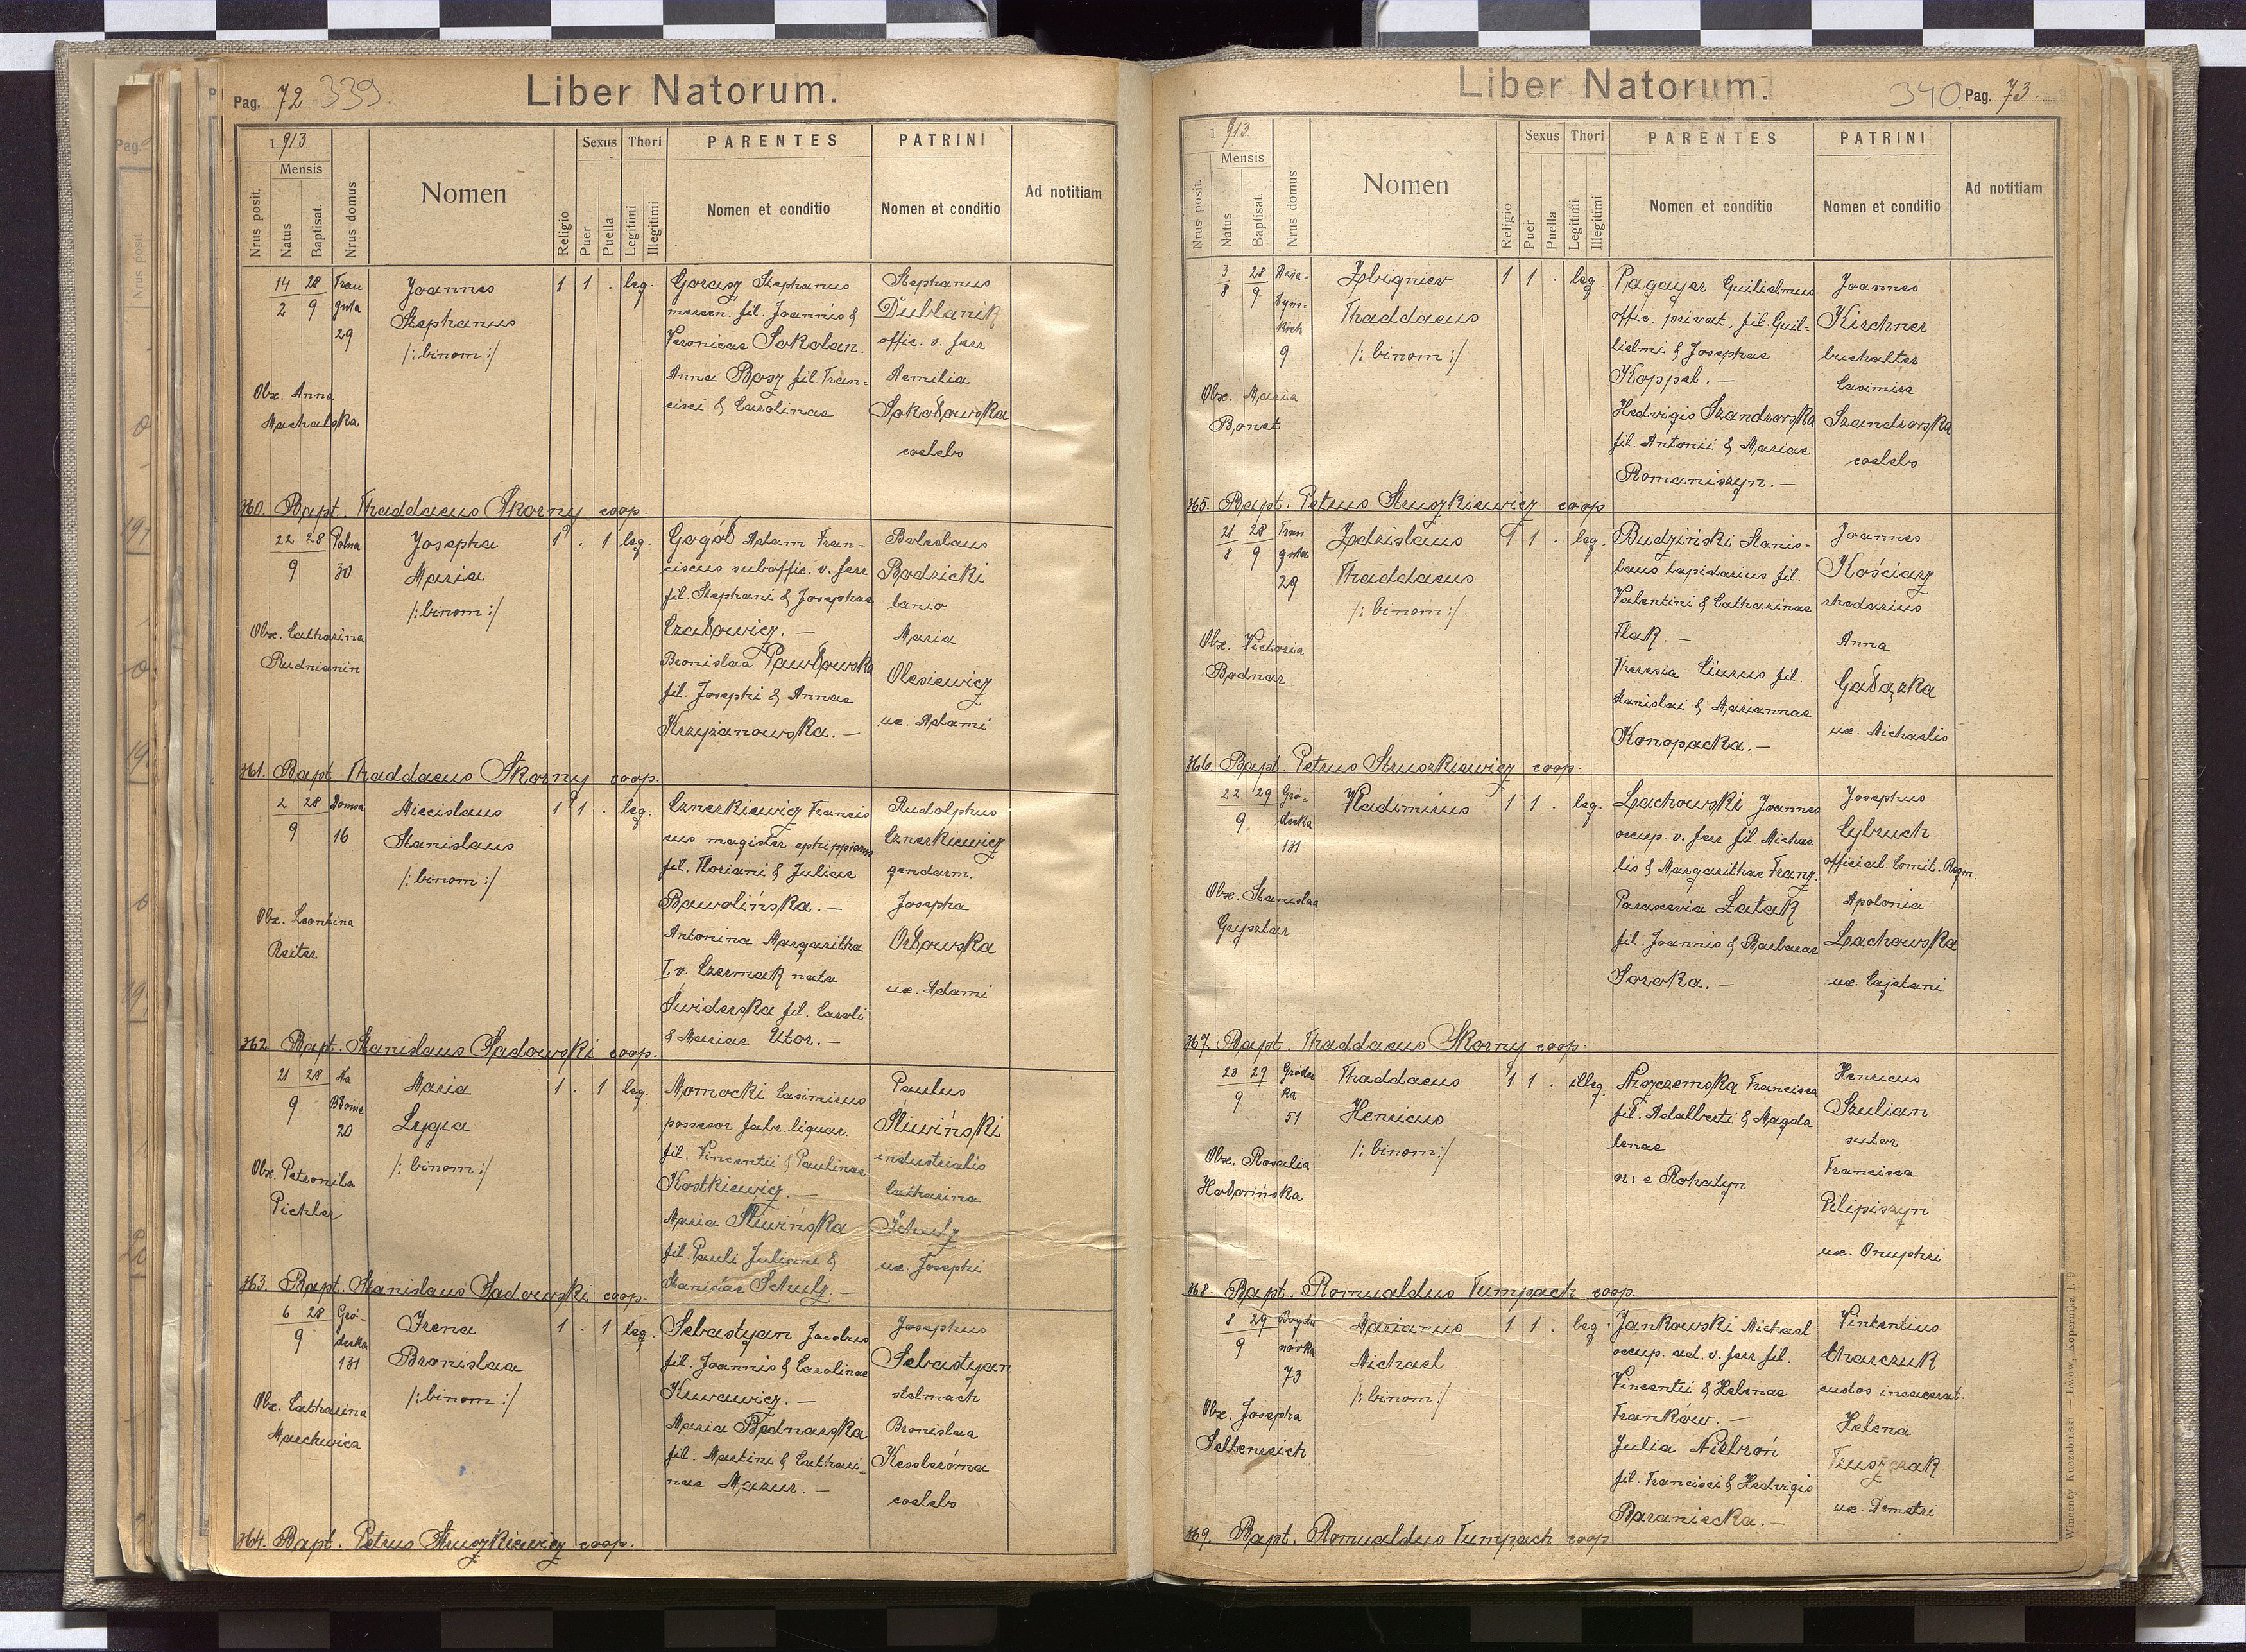 Pag. 72 339.
Liber Natorum.
1913
Mensis
Nrus posit.
Natus
Baptisat.
Nrus domus
Nomen
Religio
Sexus
Puer
Puella
Thori
Legitimi
Illegitimi
PARENTES
Nomen et conditio
PATRINI
Nomen et conditio
Ad notitiam
14 28
2 9
29
Joannes
Stephanus
/: binom :/
1 1 . leg.
Gorasz Stephanus
fil. Joannis &
Veronicae Sokolan.
Anna Bosz fil. Fran-
cisci & Carolinae
Stephanus
Dublanik
offic. v. ferr
Aemilia
Sokołowska
coelebs
Obx. Anna
Machalska
360. Bapt. Thaddaeus Skorny coop.
22 28 Polna
9 30
Josepha
Maria
/: binom :/
1 . 1 leg.
Gogół Adam Fran-
ciscus suboffic. v. ferr
fil. Stephani & Josephae
Czałowicz. —
Bronislaa Pawłowska
fil. Josephi & Annae
Krzyżanowska. —
Boleslaus
Rodzicki
lanio
Maria
Olesiewicz
ux. Adami
Obx. Catharina
Rudnianin
361. Bapt. Thaddaeus Skorny coop.
2 28
9 16
Miecislaus
Stanislaus
/: binom :/
1 1 . leg.
Cznerkiewicz Francis
cus magister ephippiorum
fil. Floriani & Juliae
Bawolińska. —
Antonina Margaritha
I. v. Czermak nata
Świderska fil. Caroli
& Mariae Utor. —
Rudolphus
Cznerkiewicz
gendarm.
Josepha
Orłowska
ux. Adami
Obx. Leontina
Reiter
362 Bapt. Stanislaus Sadowski coop.
21 28 Na
9 Błonie
20
Maria
Lygia
/: binom :/
1 . 1 leg.
Momocki Casimirus
possessor fabr. liquor.
fil. Vincentii & Paulinae
Kostkiewicz. —
Maria Śliwińska
fil. Pauli Juliani &
Schulz. —
Paulus
Śliwiński
industrialis
Catharina
Schulz
ux. Josephi
Obx. Petronila
Pichler
363. Bapt. Stanislaus Sadowski coop.
6 28 Gró-
9 decka
131
Irena
Bronislaa
/: binom :/
1 . 1 leg.
Sebastyan Jacobus
fil. Joannis & Carolinae
Maria Bodnarska
fil. Martini & Cathari-
nae Mazur. —
Josephus
Sebastyan
stelmach
Bronislaa
Kesslerówna
coelebs
Obx. Catharina
Marchwica
364. Bapt. Petrus Struszkiewicz coop.
Liber Natorum.
340. Pag. 73.
1913
Mensis
Nrus posit.
Natus
Baptisat.
Nrus domus
Nomen
Religio
Sexus
Puer
Puella
Thori
Legitimi
Illegitimi
PARENTES
Nomen et conditio
PATRINI
Nomen et conditio
Ad notitiam
3 28
8 9
9
Zbigniev
Thaddaeus
/: binom :/
1 1 . leg.
Pagayer Guilielmus
offic. privat. fil. Guil-
lielmi & Josephae
Koppel. —
Hedvigis Szandrowska
fil. Antonii & Mariae
Romaniszyn. —
Joannes
Kirchner
buchalter
Casimira
Szandrowska
coelebs
Obx. Maria
Bonet
365. Bapt. Petrus Struszkiewicz coop
21 28
8 9
29
Zdzislaus
Thaddaeus
/: binom :/
1 1 . leg.
Budziński Stanis-
laus lapidarius fil.
Valentini & Catharinae
Flak. —
Theresia Ciurus fil.
Stanislai & Mariannae
Konopacka. —
Joannes
Kościarz
rhedarius
Anna
Gałązka
ux. Michaelis
Obx. Victoria
Bodnar
366. Bapt. Petrus Struszkiewicz coop.
22 29 Gró-
9 decka
131
Vladimirus
1 1 . leg.
Lachowski Joannes
occup. v. ferr fil. Michae
lis & Margarithae Franz.
Parascevia Łatak
fil. Joannis & Barbarae
Soroka. —
Josephus
Cybruch
official. Comit. Regm.
Apolonia
Lachowska
ux. Cajetani
Obx. Stanislaa
Grysztar
367. Bapt. Thaddaeus Skorny coop.
23 29 Gródec
9 ka
51
Thaddaeus
Henricus
/: binom :/
1 1 . illeg.
Niszczemska Francisca
fil. Adalberti & Magda
lenae
ori e Rohatyn
Henricus
Szulian
sutor
Francisca
Pilipiszyn
ux. Onuphri
Obx. Rosalia
Hołowińska
368. Bapt. Romualdus Tumpach coop.
8 29 Bogda
9 nówka
73
Marianus
Michael
/: binom :/
1 1 . leg.
Jankowski Michael
occup. ad. v. ferr fil.
Vincentii & Helenae
Franków. —
Julia Niebroń
fil. Francisci & Hedvigis
Baraniecka. —
Vintentius
Charczuk
custos incarcerat.
Helena
ux. Demetri
Obx. Josepha
Seltenreich
369. Bapt. Romualdus Tumpach coop
Wincenty Kuczabiński. — Lwów, Kopernika l. 9